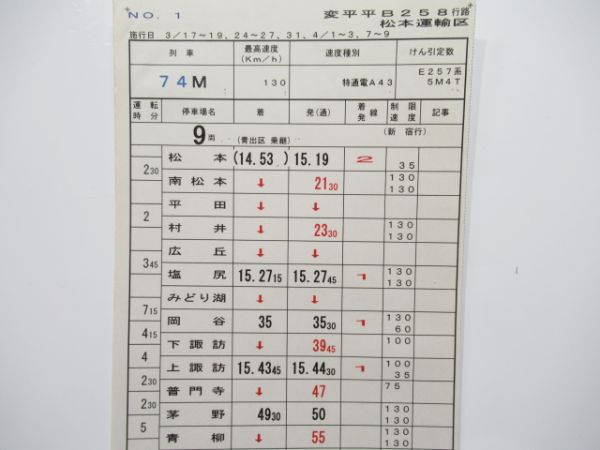 NO. 1 変平平B258行路
松本運輸区
施行日 3/17~19、24~27、31、4/1~3、7~9
列車 最高速度(Km/h) 速度種別 けん引定数
74M 130 特通電A43 E257系 5M4T
運転時分 停車場名 着 発(通) 着発線 制限速度 記事
9両 (青出区 乗継) (新宿行)
松本 (14.53) 15.19 2 35
2 30
南松本 ↓ 21 30 130 130
平田 ↓ ↓
2
村井 ↓ 23 30 130 130
広丘 ↓ ↓
3 45
塩尻 15.27 15 15.27 45 1 130 130
みどり湖 ↓ ↓
7 15
岡谷 35 35 30 1 130 60
4 15
下諏訪 ↓ 39 45 100
4
上諏訪 15.43 45 15.44 30 1 100 35
2 30
普門寺 ↓ 47 75
2 30
茅野 49 30 50 130 130
5
青柳 ↓ 55 130 130